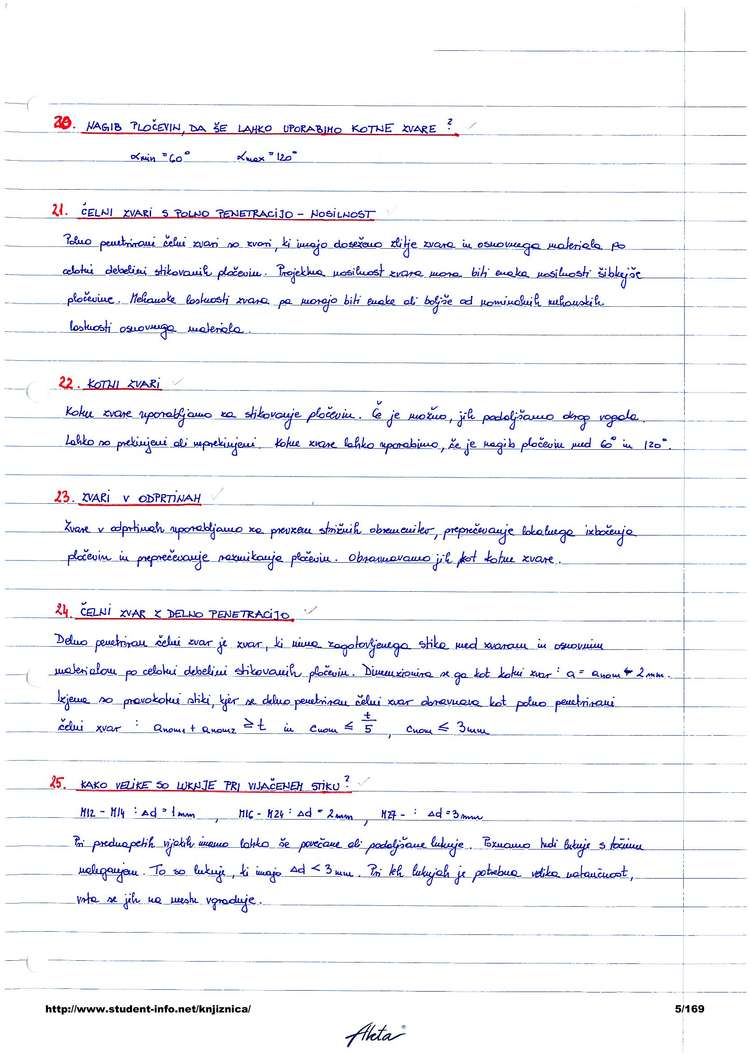 20. NAGIB PLOČEVIN, DA ŠE LAHKO UPORABIMO KOTNE ZVARE?
αmin = 60° αmax = 120°
21. ČELNI ZVARI S POLNO PENETRACIJO - NOSILNOST
Polno penetrirani čelni zvari so zvari, ki imajo doseženo zlitje zvara in osnovnega materiala po
celotni debelini stikovanih pločevin. Projektna nosilnost zvara mora biti enaka nosilnosti šibkejše
pločevine. Mehanske lastnosti zvara pa morajo biti enake ali boljše od nominalnih mehanskih
lastnosti osnovnega materiala.
22. KOTNI ZVARI
Kotne zvare uporabljamo za stikovanje pločevin. Če je možno, jih podaljšamo okrog vogala.
Lahko so prekinjeni ali neprekinjeni. Kotne zvare lahko uporabimo, če je nagib pločevin med 60° in 120°.
23. ZVARI V ODPRTINAH
Zvare v odprtinah uporabljamo za prevzem strižnih obremenitev, preprečevanje lokalnega izbočenja
pločevin in preprečevanje razmikanja pločevin. Obravnavamo jih kot kotne zvare.
24. ČELNI ZVAR Z DELNO PENETRACIJO
Delno penetriran čelni zvar je zvar, ki nima zagotovljenega stika med zvarom in osnovnim
materialom po celotni debelini stikovanih pločevin. Dimenzionira se ga kot kotni zvar: a = anom - 2 mm.
Izjema so pravokotni stiki, kjer se delno penetriran čelni zvar obravnava kot polno penetrirani
čelni zvar : anom1 + anom2 ≥ t in cnom ≤ t/5, cnom ≤ 3mm
25. KAKO VELIKE SO LUKNJE PRI VIJAČENEM STIKU?
M12 - M14 : Δd = 1mm, M16 - M24 : Δd = 2mm, M27 - : Δd = 3mm
Pri prednapetih vijakih imamo lahko še povečane ali podaljšane luknje. Poznamo tudi luknje s točnim
naleganjem. To so luknje, ki imajo Δd < 3 mm. Pri teh luknjah je potrebna velika natančnost,
vrta se jih na mestu vgradnje.
http://www.student-info.net/knjiznica/ 5/169
Akta